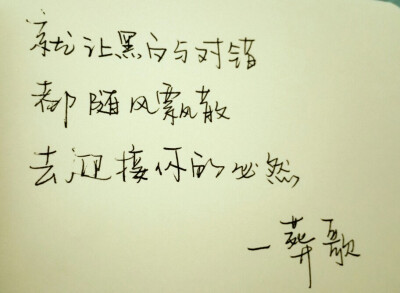 就让黑白与对错
都随风飘散
去迎接你的必然
—葬歌